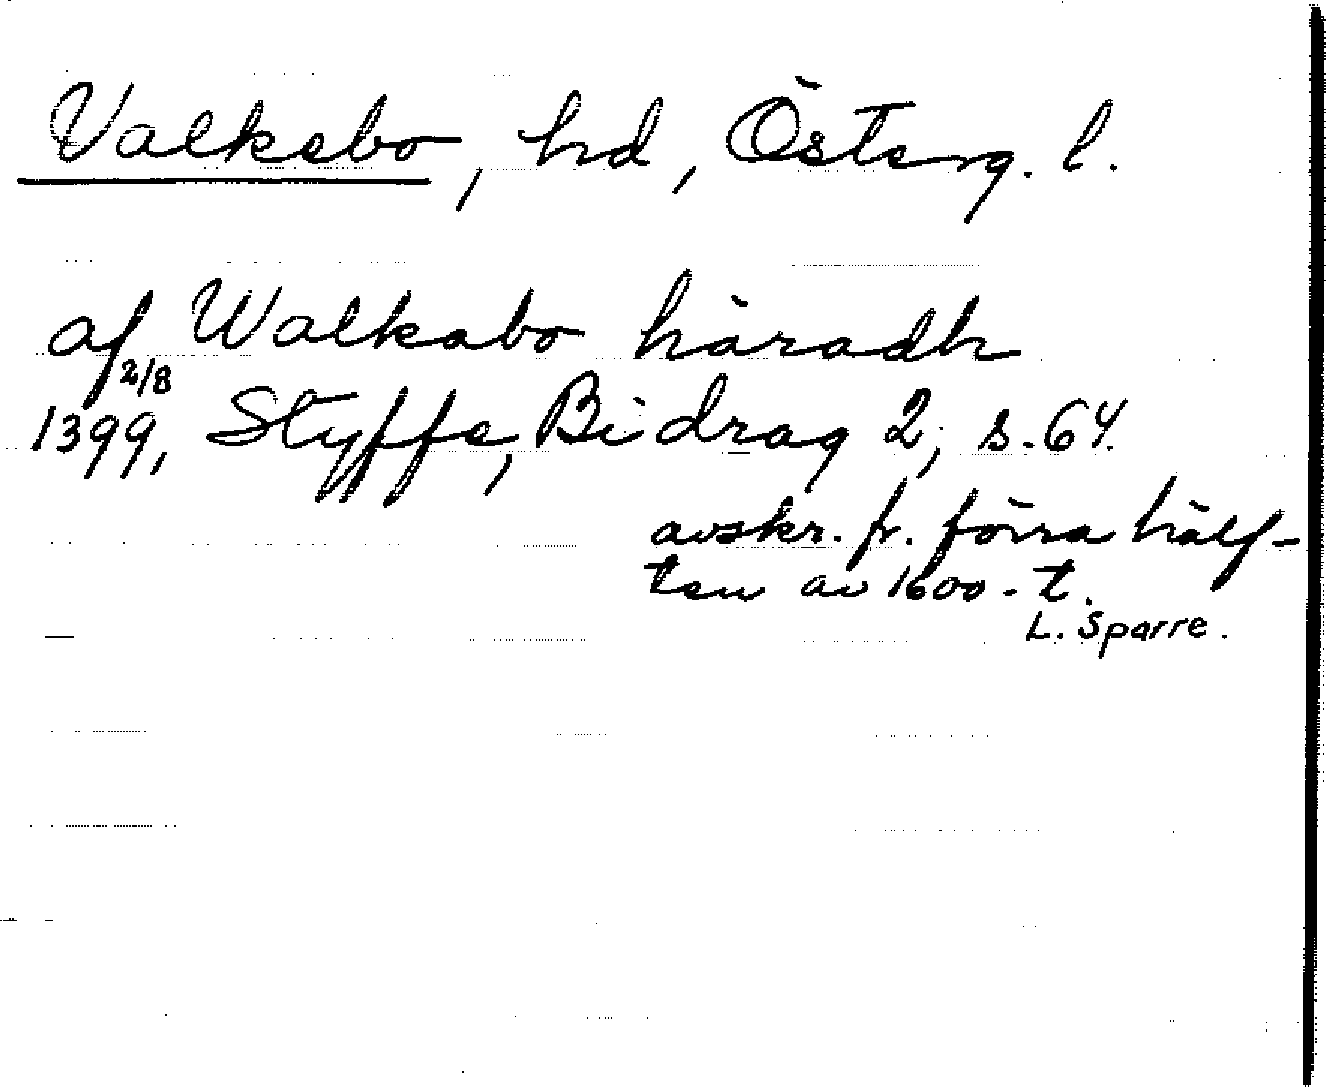 Valkebo, hd, Österg. l.
af Walkabo häradh
2/8
1399, Styffe, Bidrag 2, s. 64.
avskr. fr. förra hälf-
ten av 1600-t.
L. Sparre.